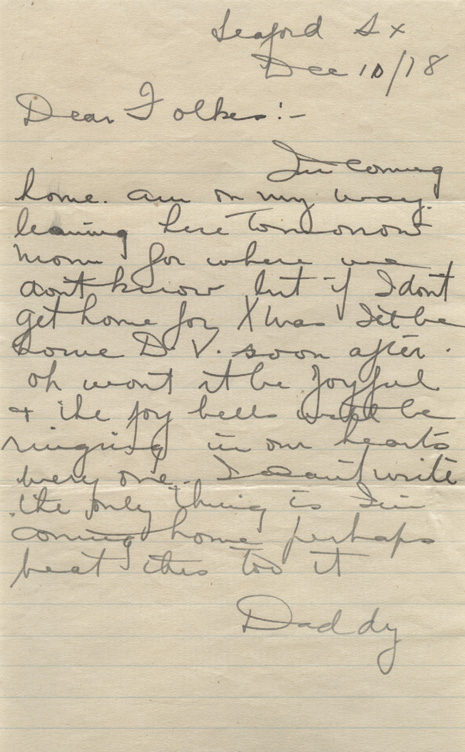 Seaford Sx
Dec 10/18
Dear Folkes:-
I'm coming
home. am on my way.
leaving here tomorrow
morn for where we
dont know but if I don't
get home for Xmas I'll be
home D.V. soon after.
oh wont it be Joyful
+ the joy bells be
ringing in our hearts
every one. I can't write
the only thing is I'm
coming home perhaps
beat this too it
Daddy